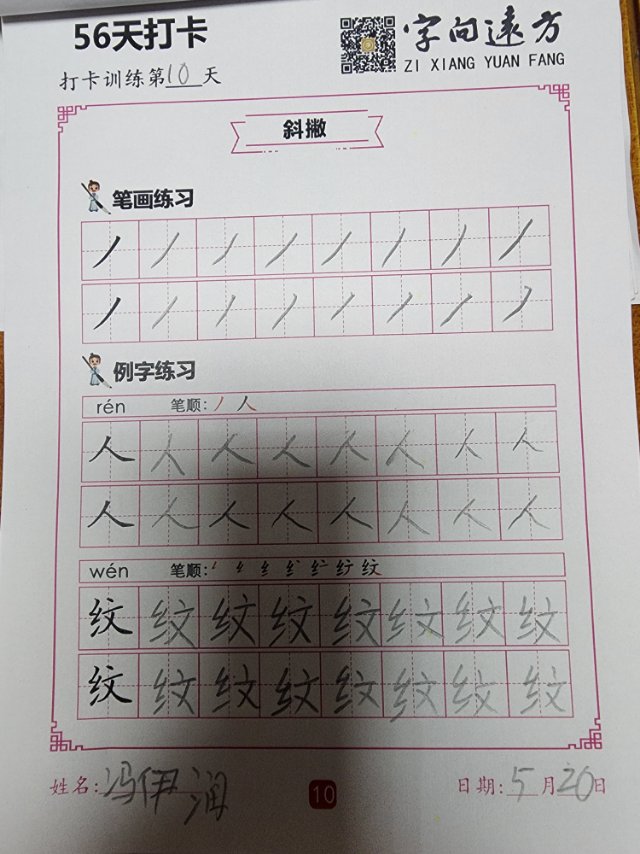 56天打卡
字向远方
ZI XIANG YUAN FANG
打卡训练第10天
斜撇
笔画练习
丿丿丿丿丿丿丿丿
丿丿丿丿丿丿丿丿
例字练习
rén 笔顺: 丿 人
人人人人人人人人
人人人人人人人人
wén 笔顺: 纹
纹纹纹纹纹纹纹纹
纹纹纹纹纹纹纹纹
姓名: 冯伊润
10
日期: 5月20日